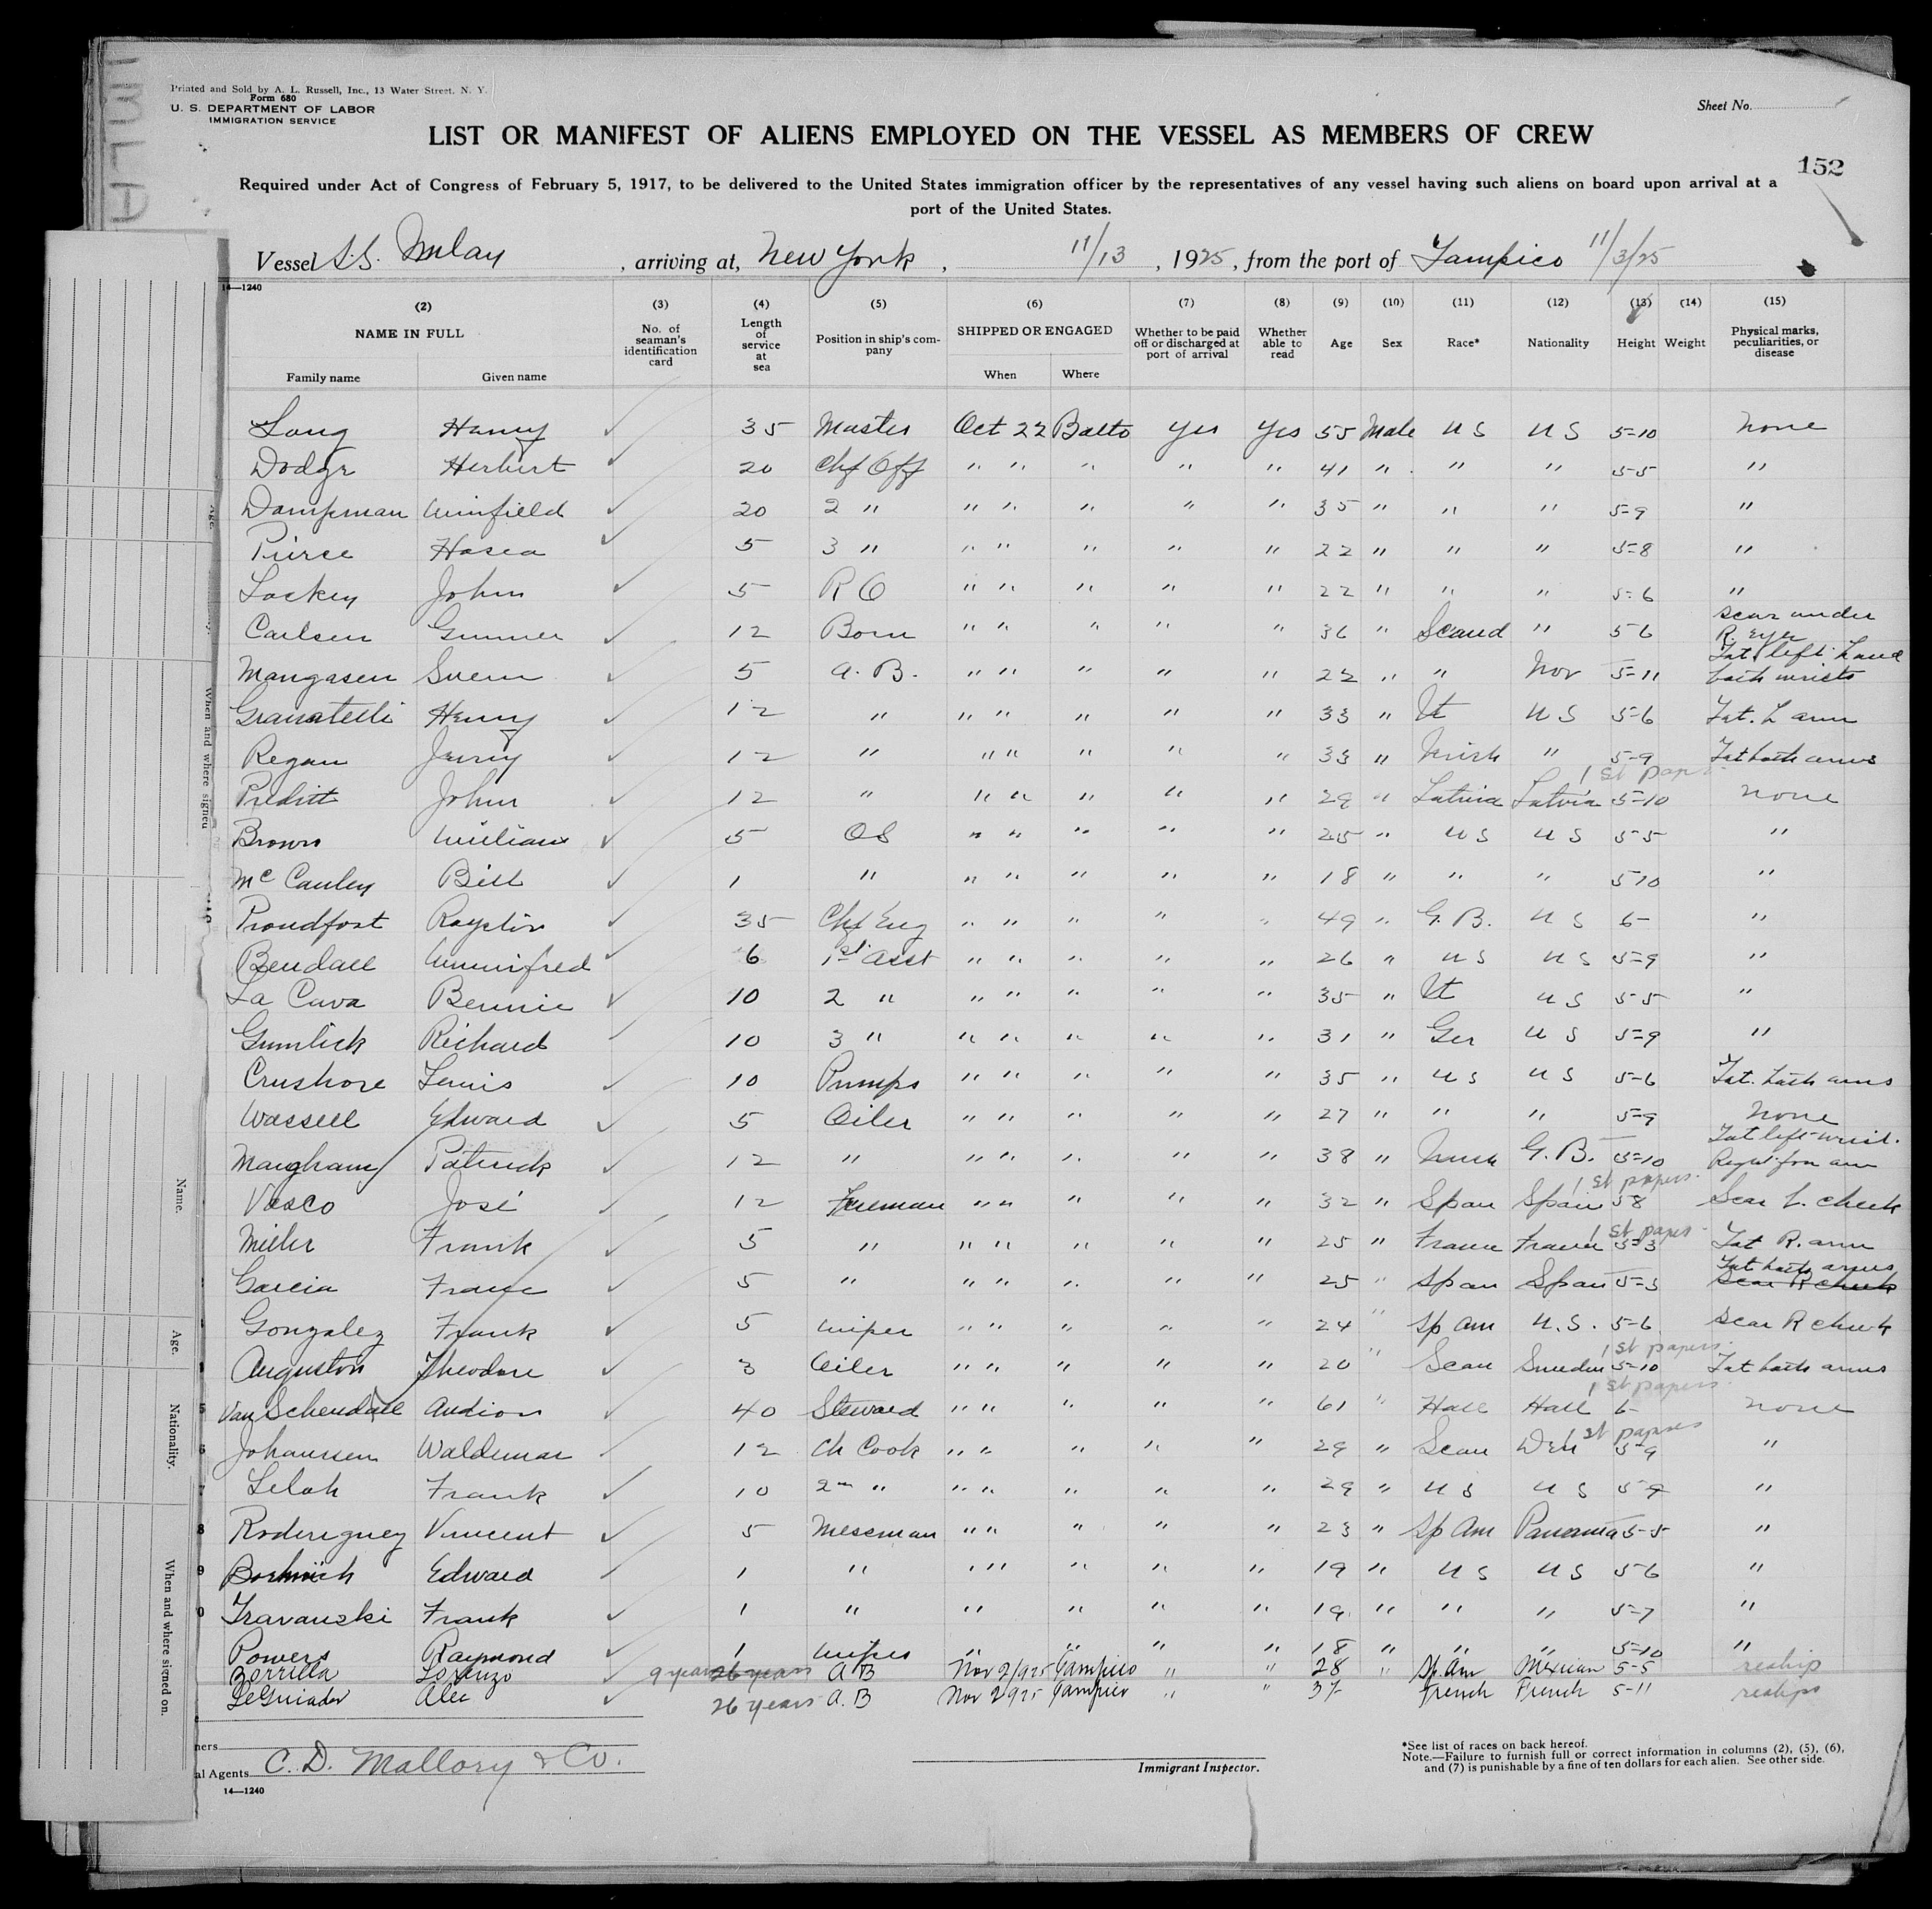 Printed and Sold by A. L. Russell, Inc., 13 Water Street, N. Y.
Form 680
U. S. DEPARTMENT OF LABOR
IMMIGRATION SERVICE
Sheet No.
LIST OR MANIFEST OF ALIENS EMPLOYED ON THE VESSEL AS MEMBERS OF CREW
152
Required under Act of Congress of February 5, 1917, to be delivered to the United States immigration officer by the representatives of any vessel having such aliens on board upon arrival at a
port of the United States.
Vessel S.S. Imlay, arriving at, New York, 11/13, 1925, from the port of Tampico 11/3/25
14—1240
(2) (3) (4) (5) (6) (7) (8) (9) (10) (11) (12) (13) (14) (15)
NAME IN FULL No. of seaman's identification card Length of service at sea Position in ship's company SHIPPED OR ENGAGED Whether to be paid off or discharged at port of arrival Whether able to read Age Sex Race* Nationality Height Weight Physical marks, peculiarities, or disease
Family name Given name When Where
Long Harry ✓ 35 Master Oct 22 Balto Yes Yes 55 Male U S U S 5-10 None
Dodge Herbert ✓ 20 Chf Off " " " " " 41 " " " 5-5 "
Dampman Winfield ✓ 20 2 " " " " " " 35 " " " 5-9 "
Pierce Hosea ✓ 5 3 " " " " " " 22 " " " 5-8 "
Lackey John ✓ 5 R O " " " " " 22 " " " 5-6 "
Carlsen Gunner ✓ 12 Bosn " " " " " 36 " Scand " 5 6 Scar under R. Eye
Mangasen Svem ✓ 5 A. B. " " " " " 22 " " Nor 5-11 Tat left hand both wrists
Granatelli Henry ✓ 12 " " " " " " 33 " It U S 5-6 Tat. L arm
Regan Jerry ✓ 12 " " " " " " 33 " Irish " 5-9 Tat both arms
1st papr
Preditt John ✓ 12 " " " " " " 29 " Latvia Latvia 5-10 None
Brown William ✓ 5 OS " " " " " 25 " U S U S 5-5 "
McCauley Bill ✓ 1 " " " " " " 18 " " " 5 10 "
Proudfoot Royston ✓ 35 Chf Eng " " " " " 49 " G. B. U S 6- "
Bendall Winnifred ✓ 6 1st Asst " " " " " 26 " U S U S 5-9 "
La Cava Bennie ✓ 10 2 " " " " " " 35 " It U S 5-5 "
Gumlick Richard ✓ 10 3 " " " " " " 31 " Ger U S 5-9 "
Crushore Lewis ✓ 10 Pumps " " " " " 35 " U S U S 5-6 Tat. both arms
Wassell Edward ✓ 5 Oiler " " " " " 27 " " " 5-9 None
Maugham Patrick ✓ 12 " " " " " " 38 " G. B. 5-10 Tat left wrist. Right for arm
1st papers.
Vasco José ✓ 12 Fireman " " " " " 32 " Span Spain 5 8 Scar L. cheek
1st papers
Miller Frank ✓ 5 " " " " " " 25 " France France 5-3 Tat R. arm
Garcia Franc ✓ 5 " " " " " " 25 " Span Span 5-3 Tat both arms Scar R cheek
Gonzalez Frank ✓ 5 Wiper " " " " " 24 " Sp Am U. S. 5-6 Scar R cheek
1st papers
Auguston Theodore ✓ 3 Oiler " " " " " 20 " Scan Sweden 5-10 Tat both arms
1st papers
Van Schendall Audion ✓ 40 Steward " " " " " 61 " Holl Holl 6- None
1st papers
Johanssen Waldemar ✓ 12 Ch Cook " " " " " 29 " Scan Den 5-9 "
Lelah Frank ✓ 10 2nd " " " " " " 29 " U S U S 5-9 "
Roderiguez Vincent ✓ 5 Messman " " " " " 23 " Sp Am Panama 5-5 "
Edward ✓ 1 " " " " " " 19 " U S U S 5-6 "
Travanski Frank ✓ 1 " " " " " 19 " " " 5-7 "
Powers Raymond ✓ 1 Wiper " " " " 18 " " " 5-10 "
Borrilla Lorenzo ✓ 9 years 26 years A B Nov 2/925 Tampico " " 28 " Sp. Am Mexican 5-5 reship
LeGuiador Alec ✓ 26 years A. B Nov 2 925 Tampico " " 37 French French 5-11 reships
ners
al Agents C. D. Mallory & Co.
Immigrant Inspector.
*See list of races on back hereof.
Note.—Failure to furnish full or correct information in columns (2), (5), (6),
and (7) is punishable by a fine of ten dollars for each alien. See other side.
14—1240
Age.
When and where signed
Name.
Age.
Nationality.
When and where signed on.